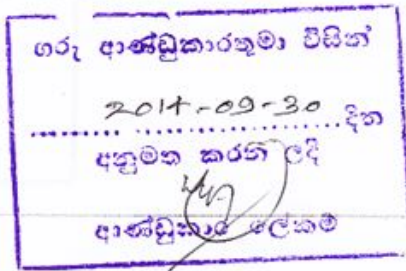 ගරු ආණ්ඩුකාරතුමා විසින්
2014-09-30
.................................... දින
අනුමත කරන ලදී
ආණ්ඩුකාර ලේකම්